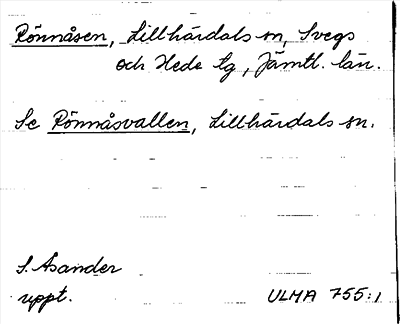 Rönnåsen, Lillhärdals sn, Svegs
och Hede tg, Jämtl. län.
Se Rönnåsvallen, Lillhärdals sn.
S. Åsander
uppt.
ULMA 755:1